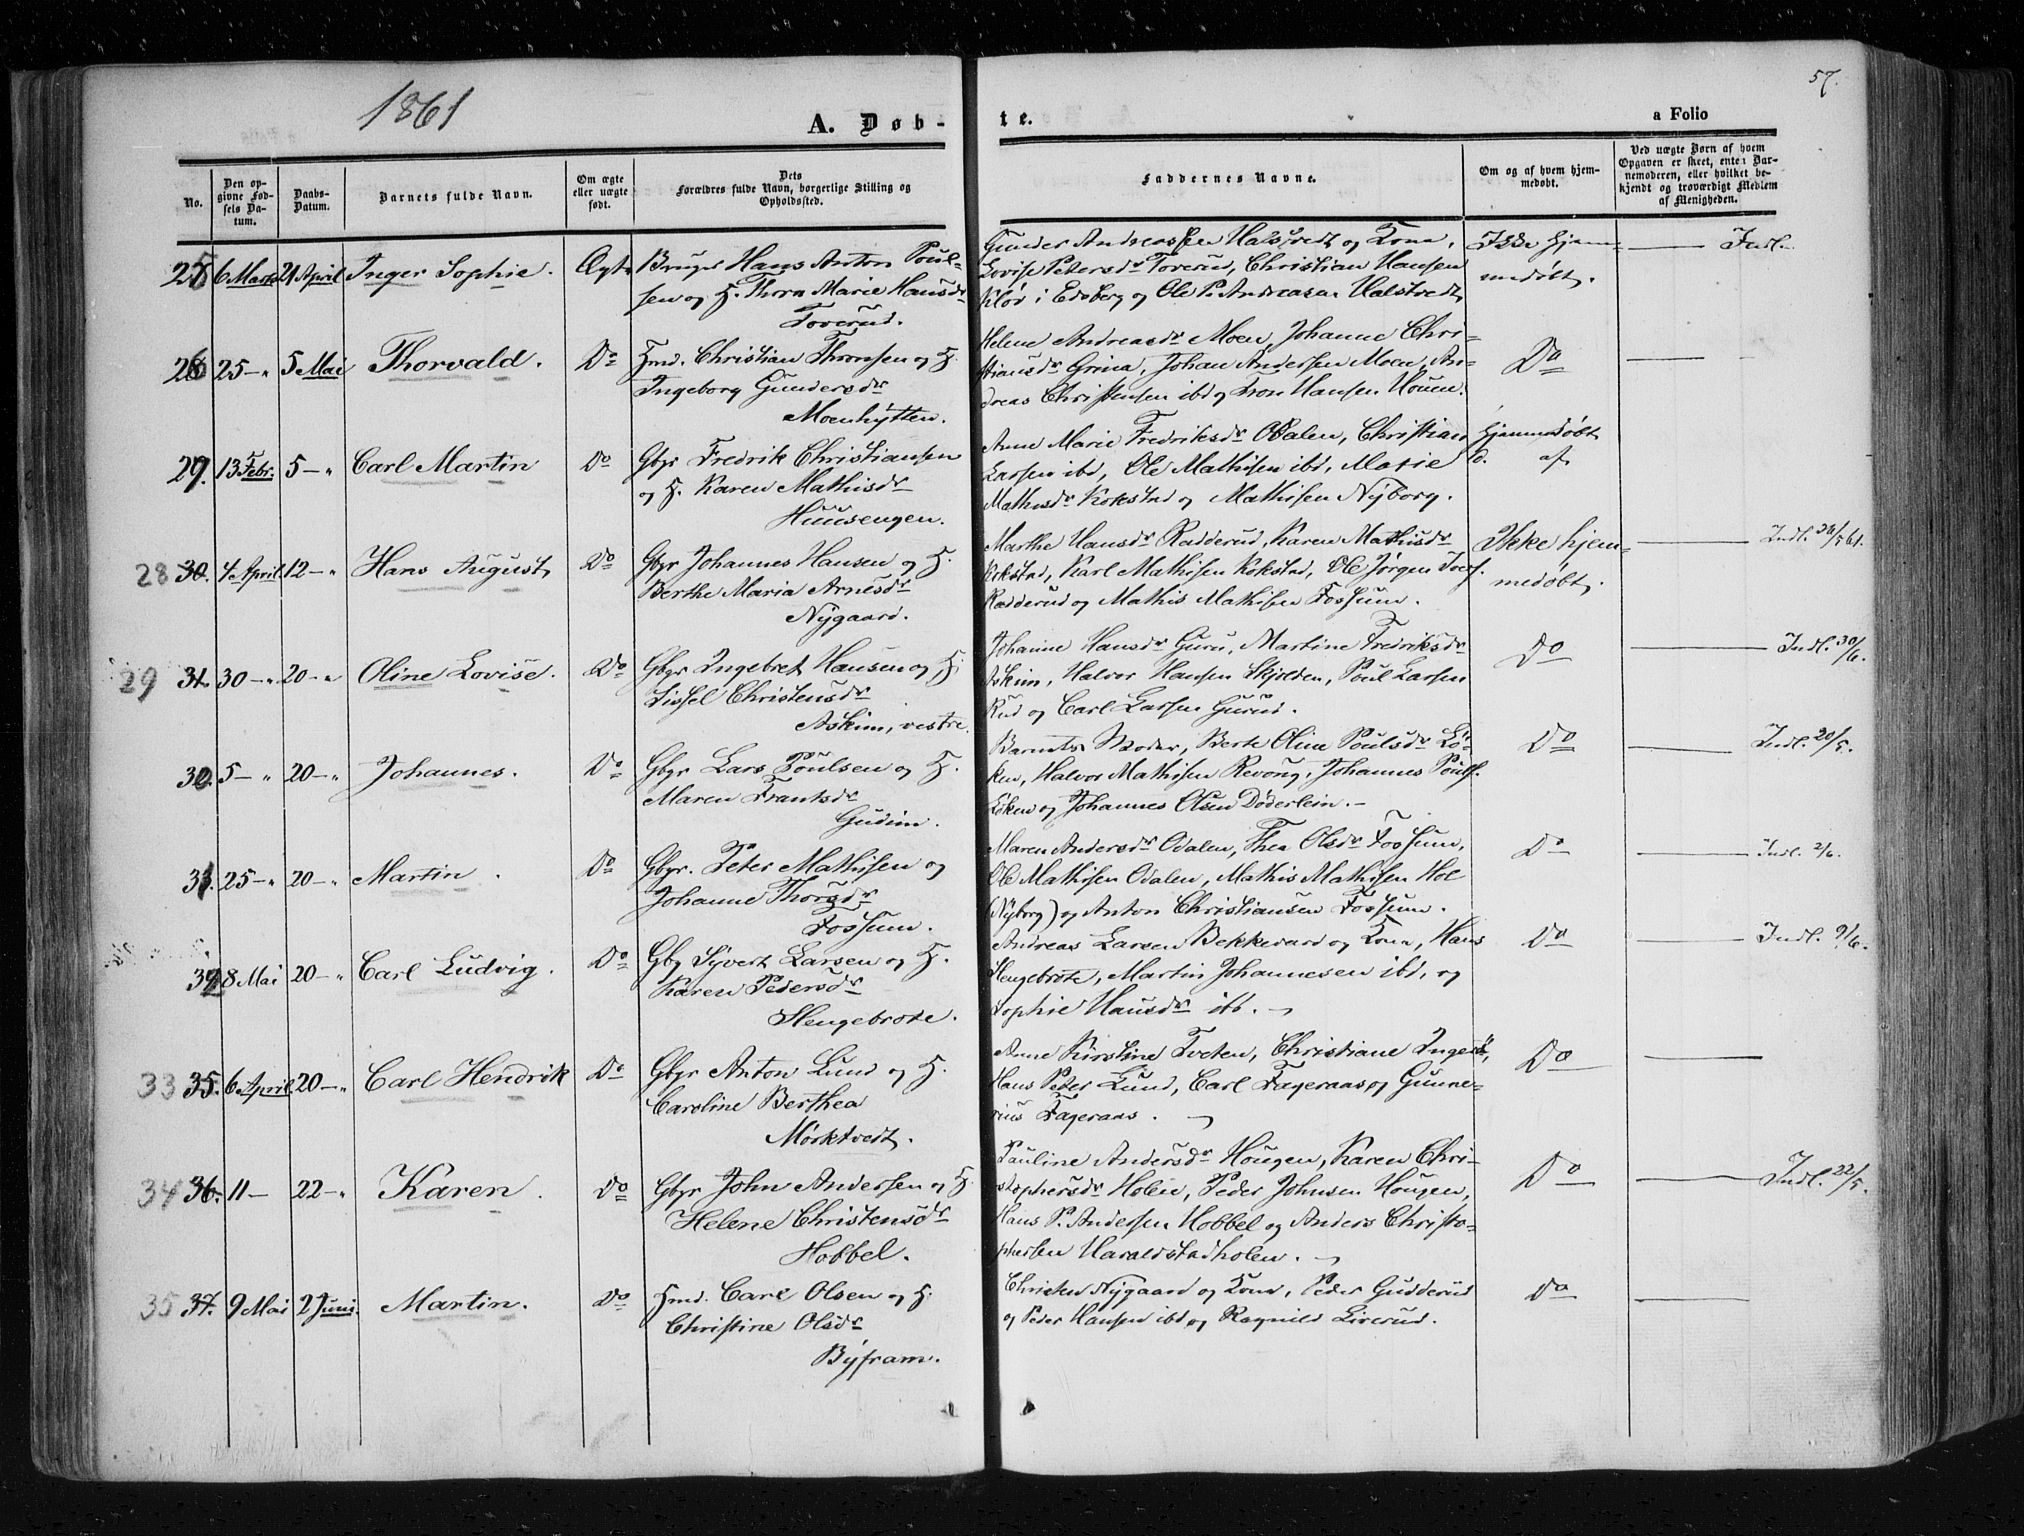 1861
57.
A. Døb-
te.
a Folio
No.
Den op-
givne Fød-
sels Da-
tum.
Daabs-
Datum.
Barnets fulde Navn.
Om ægte
eller uægte
født.
Dets
Forældres fulde Navn, borgerlige Stilling og
Opholdssted.
Faddernes Navne.
Om og af hvem hjem-
medøbt.
Ved uægte Børn af hvem
Opgaven er skeet, enten Bar-
nemoderen, eller hvilket be-
kjendt og troværdigt Medlem
af Menigheden.
6 Marts 21 April Inger Sophie. Ægte
Bruger Hans Anton Poul-
sen og H. Thora Marie Hansdr
Toverud.
Gunder Andreassen Halstvedt og Kone,
Lovise Petersdr Toverud, Christian Hansen
i Edsberg og Ole P. Andreasen Halstvedt
Ikke hjem-
medøbt.
Indl.
25 — " 5 Mai Thorvald. Do
Hmd. Christian Thronsen og H.
Ingeborg Gundersdr
Moenhytten.
Helene Andreasdr Moen, Johanne Chri-
stiansdr Grina, Johan Andersen Moen, An-
dreas Christensen ibd og Tron Hansen Mouen.
Do
29. 13 Febr. 5 — " Carl Martin Do
Gbr Fredrik Christiansen
og H. Karen Mathisdr
Huusengen.
Anne Marie Fredriksdr Odalen, Christian
Larsen ibd, Ole Mathisen ibd, Marie
Mathisdr Kokstad og Mathisen Nyborg.
Hjemmedøbt
af
28 30. 4 April 12 — " Hans August Do
Gbr Johannes Hansen og H.
Berthe Maria Arnesdr
Nygaard.
Marthe Hansdr Radderud, Karen Mathisdr
Kokstad, Karl Mathisen Kokstad, Ole Jørgen
Radderud og Mathis Mathisen Fossum.
Ikke hjem-
medøbt.
Indl. 26/5 61.
29 31. 30 — " 20 — " Oline Lovise. Do
Gbr Ingebret Hansen og H.
Sissel Christensdr
Askim, vestre.
Johanne Hansdr Guru, Martine Fredriksdr
Askim, Halvor Hansen Skjolden, Poul Larsen
Rud og Carl Larsen Gurud.
Do
Indl. 30/6.
30. 5 — " 20 — " Johannes. Do
Gbr Lars Poulsen og H.
Maren Frantsdr
Gudim.
Barnets Moder, Berte Oline Poulsdr Lö-
ken, Halvor Mathisen Revoug, Johannes Pouls.
Löken og Johannes Olsen Döderlein. —
Do
Indl. 20/5.
31. 25 — " 20 — " Martin. Do
Gbr. Peter Mathisen og
Johanne Thorsdr
Fossum.
Maren Andersdr Odalen, Thea Olsdr Fossum,
Ole Mathisen Odalen, Mathis Mathisen Hol
(Nyborg) og Anton Christiansen Fossum.
Do
Indl. 2/6.
8 Mai 20 — " Carl Ludvig. Do
Gbr Syvert Larsen og H.
Karen Pedersdr
Slengebrote.
Andreas Larsen Bekkevard og Kone, Hans
Slengebrote, Martin Johannesen ibd, og
Sophie Hansdr ibd. —
Do
Indl. 9/6.
33 35. 6 April 20 — " Carl Hendrik Do
Gbr Anton Lund og H.
Caroline Berthea
Mørktvedt.
Anne Kirstine Tveten, Christiane
Hans Peter Lund, Carl Fageraas og Gunne-
rius Fageraas. —
Do
34 36. 11 — 22 — " Karen. Do
Gbr John Andersen og H.
Helene Christensdr
Hobbel.
Pauline Andersdr Hougen, Karen Chri-
stophersdr Holen, Peder Johnsen Hougen,
Hans P. Andersen Hobbel og Anders Christo-
phersen Haraldstadholen. —
Do
Indl. 22/5.
35 37. 9 Mai 2 Juni. Martin. Do
Hmd. Carl Olsen og H.
Christine Olsdr
Byfram.
Christen Nygaard og Kone, Peder Gudderud
og Peder Hansen ibd, og Ragnild Lirerud.
Do